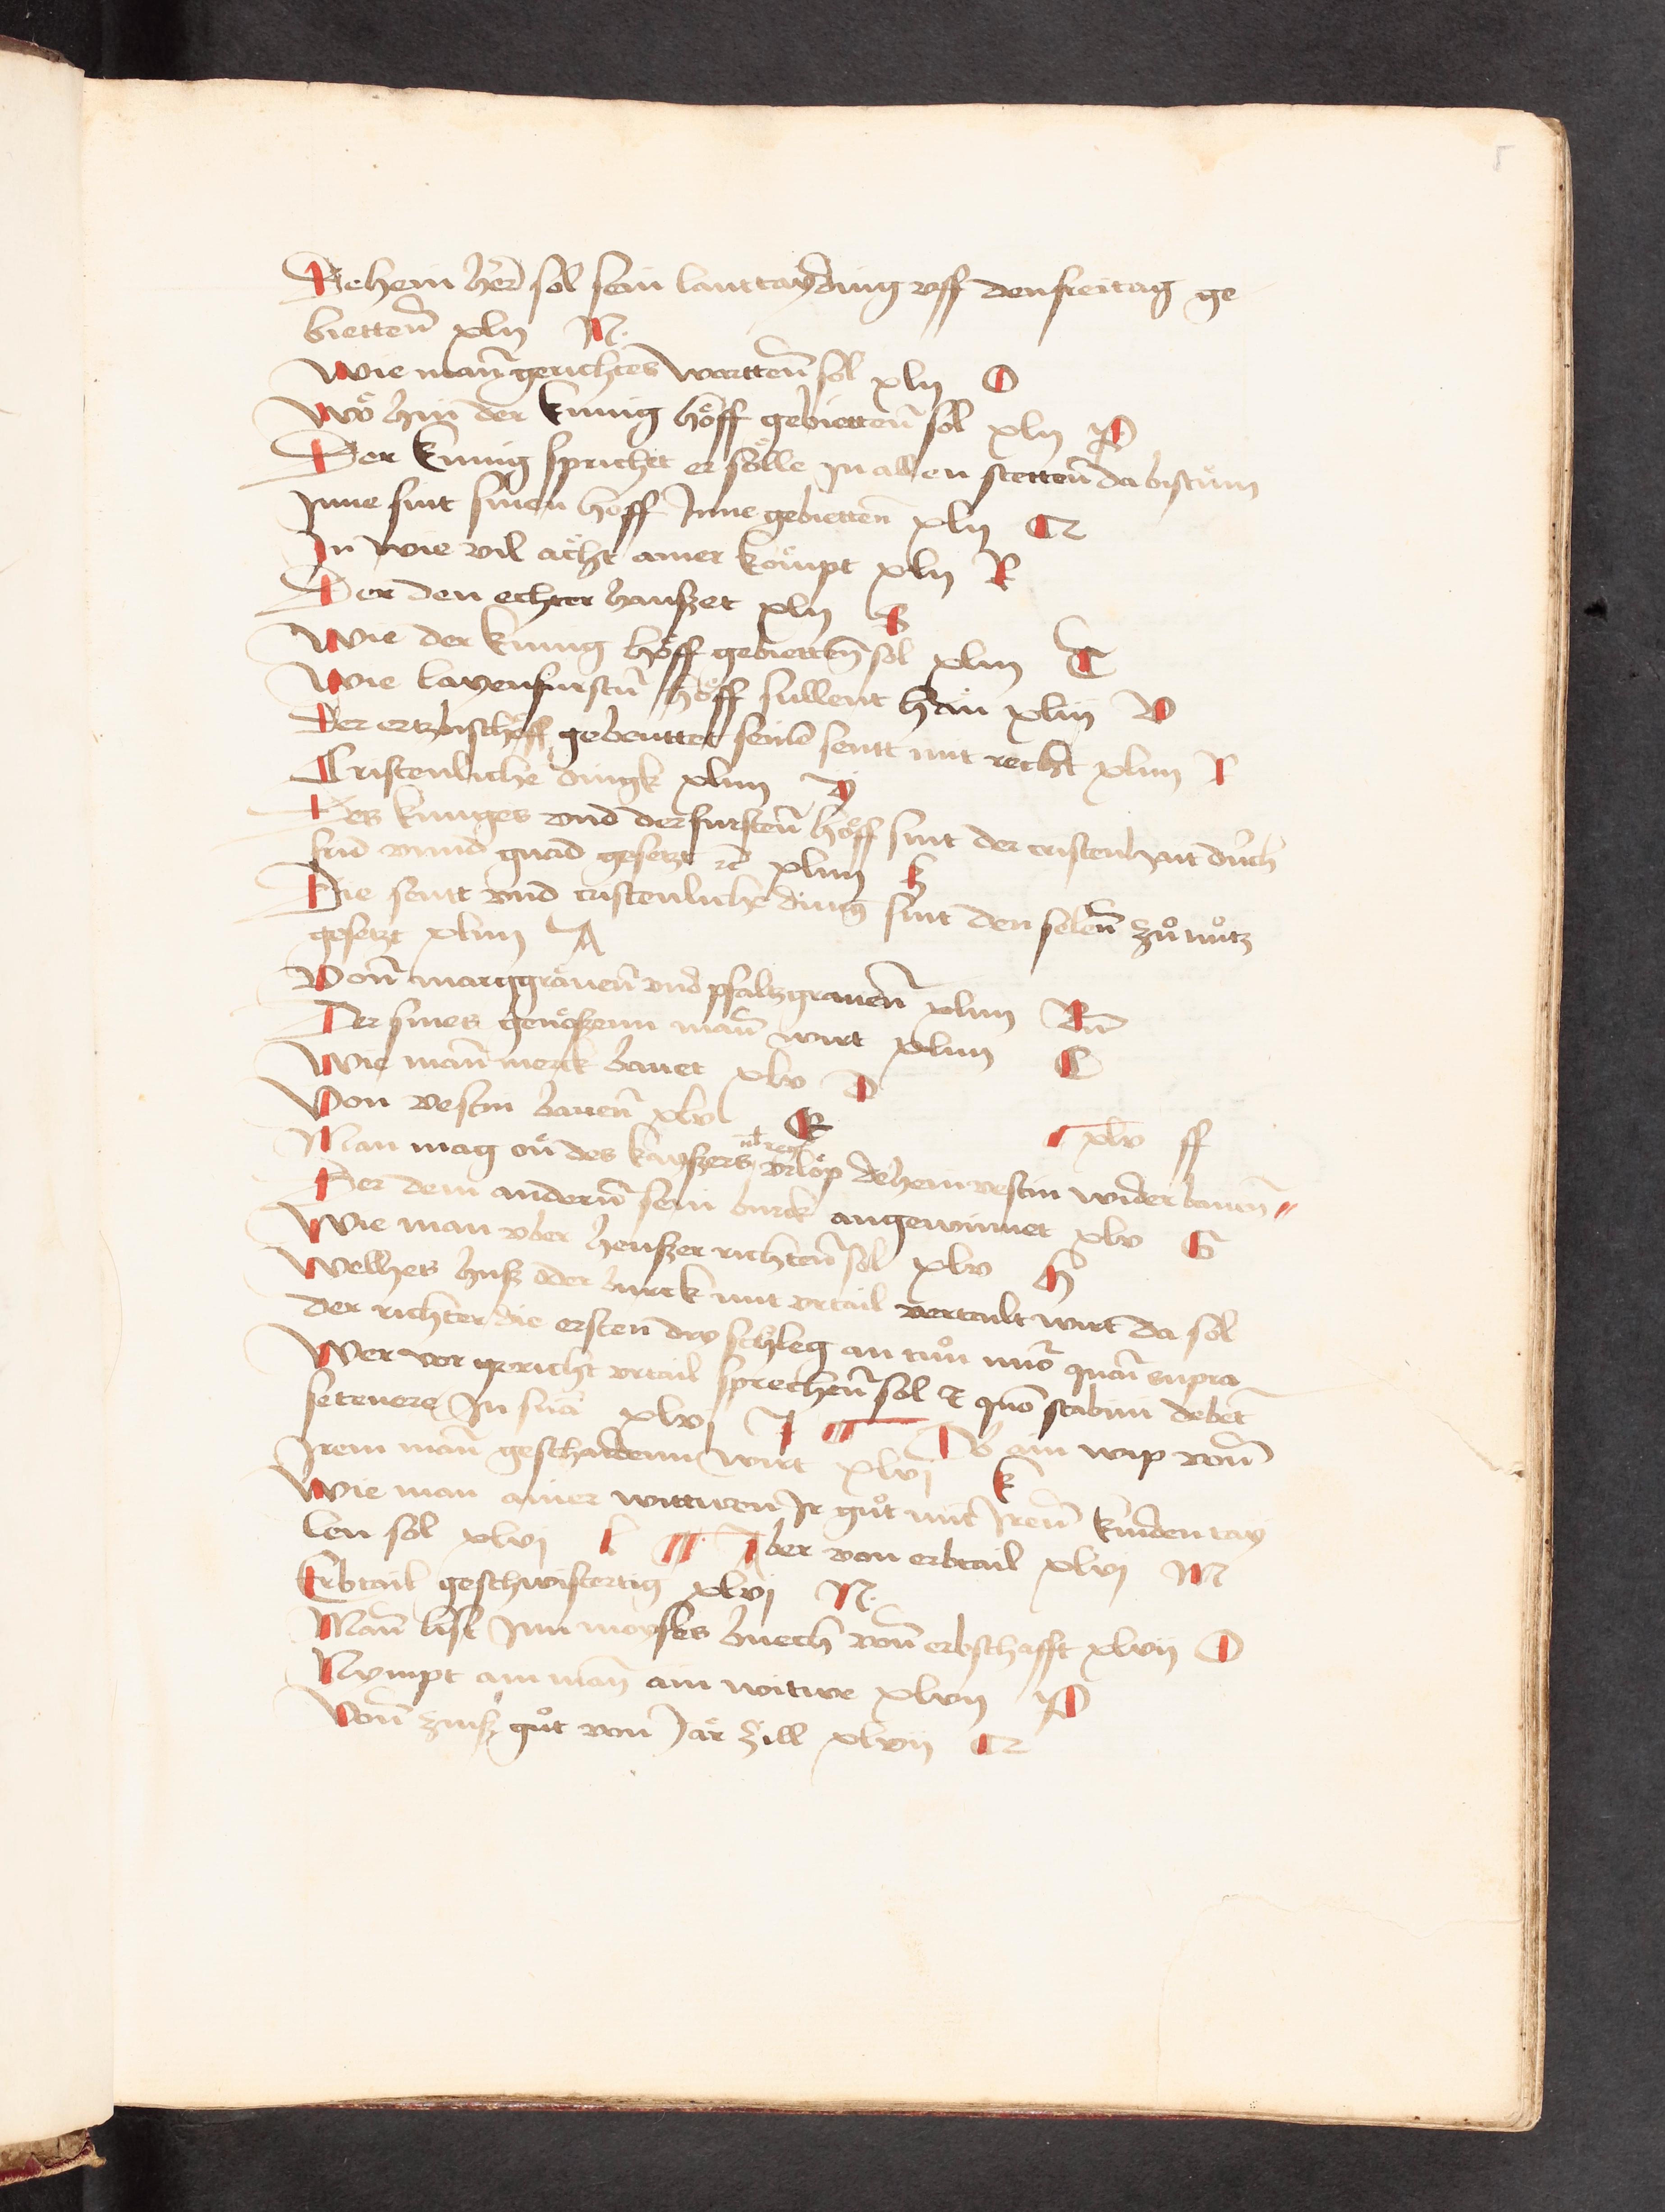 5
Dehein her̄ sol sein lanttayding vff den freitag ge
bietten̄ xlij N.
Wie man̄ gerichtes wartten̄ sol xlij O
Wö hin der kunig höff gebietten̄ sol xlij P
Der kunig sprichet er sölle in allen stetten̄ da bistum
Inne sint sinen hoff Inne gebietten̄ xlij Q
In wie vil ächt ainer kömpt xlij R
Der den echter hauszet xlij S
Wie der kunig höff gebietten̄ sol xliij T
Wie layenfurstn̄ höff sullent hän xliij V
Der ertzbischoff gebeuttet seinē sentt mit recht xliiij
Cristenliche dingk xliiij
Des kuniges vnd der fursten̄ höff sint der cristenhait durch
frid vnnd gnad gesetzt xliiij
Die sentt vnd cristenliche ding sint den selen̄ zů nůtz
gesetzt xliiij A
Von̄ marggräuen̄ vnd pfaltzgrauen̄ xliiij B
Der sines genöszenn man̄ wirt xliiij C
Wie man̄ merck bauet xlv D
Von vestin bauen̄ xlv E
xlv ff
Man mag on̄ des kayszers vrlöp dehein vestin wider bauen̄
Der dem andern̄ sein burck angewinnet xlv G
Wie man vber heuszer richten̄ sol xlv H
Welhes husz oder burck mit vrtail vertailt wirt da sol
der richter die ersten dry schleg an tůn supra
Wer vor gericht vrtail sprechen̄ sol debet
se tenere In sua xlvj J Ob ain wip von̄
Irem man̄ geschaidenn wirt xlvj k
Wie man ainer wittwen Ir gůt mit Iren̄ kinden tay
len sol xlvj l Aber von erbtail xlvj M
Erbtail geschwistertig xlvj N.
Man̄ list Inn moyses buech von̄ erbschafft xlvij O
Nympt ain man̄ ain witwe xlvij P
Von̄ zinsz gůt von Jär zill xlvij Q